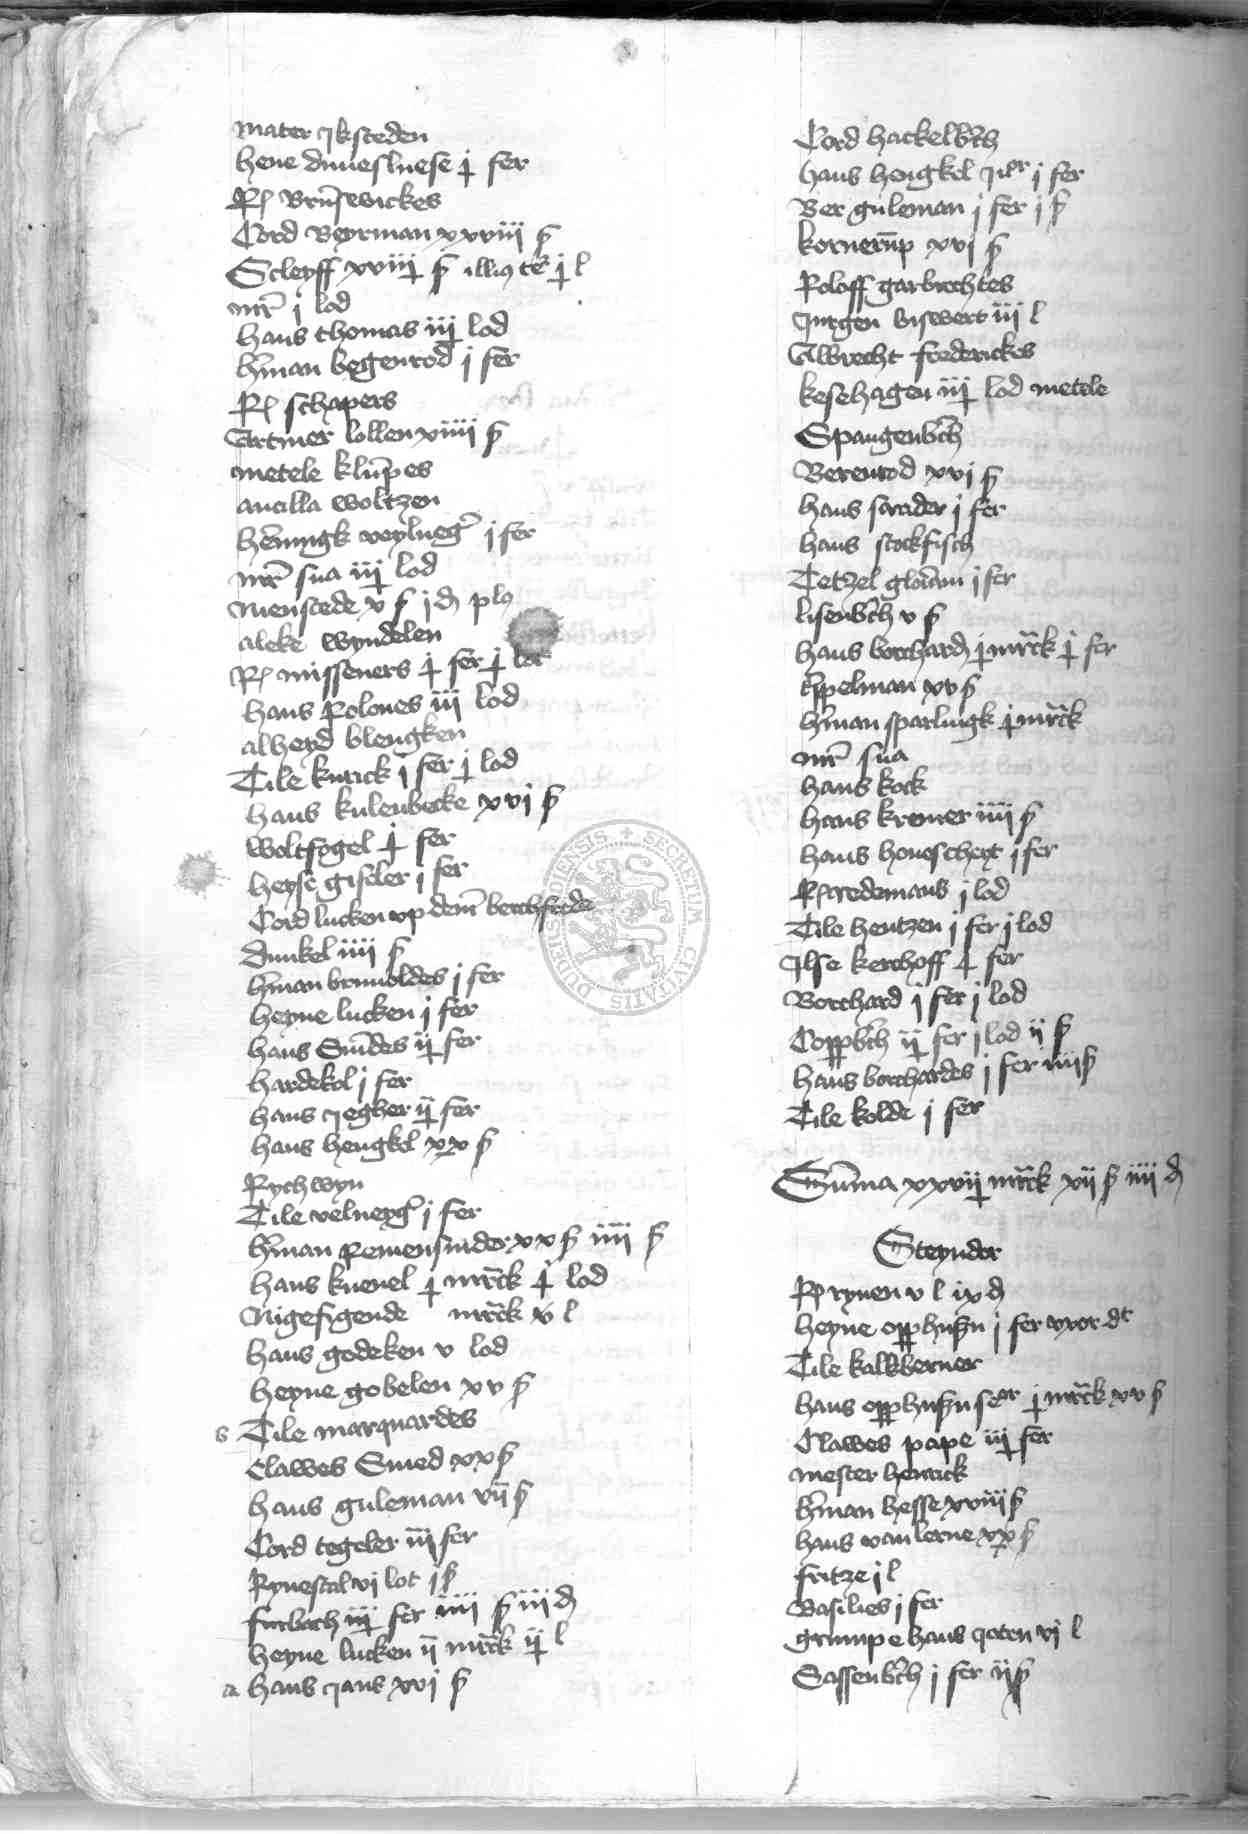 mater Jksteden
hene duuesluese j fer
Rc Brunswickes
Cord Beyrman xxviii ß
Scleyff xviij ß illius te j l
mr̄ j lod
hans thomas iij lod
h̄man begenrod j fer
Rc schapers
Artmer lollen xiiii ß
metele klumpes
ancilla woltzen
henningk
j fer
mr̄ sua iij lod
Nienstede v ß j d plus
aleke wyndelen
Rc misseners j fer j lot
hans Polones iii lod
alheyd blengken
Tile knrick j fer j lod
hans kulenbecke xvj ß
woltfogel j fer
heyse giseler j fer
Cord lucken up dem berchfrede
dunkel iiii ß
h̄man brunoldes j fer
heyne lucken j fer
hans Smedes ij fer
hardekol j fer
hans Jegher ij fer
hans hengkel xx ß
Rychwyn
Tile velneyger j fer
h̄man Remensnider xx ß iiii ß
hans knenel j mrck j lod
Nigefigende mrck v l
hans godeken v lod
heyne gobelen xv ß
s Tile marquardes
Clawes Smed xx ß
hans guleman vii ß
Cord tegeler iii fer
Rynestal vj lot j ß
furbach iij fer iiii ß iii d
heyne lucken ii mrck ij l
a hans Jans xvj ß
Cord hackelb̄ch
hans hengkel Jur j fer
Ber guleman j fer j ß
kornerump xvj ß
Roloff garbrechtes
Jurgen biswert iii l
Albrecht frederickes
kesehagen iij lod metele
Spangenb̄ch
Berenrod xvj ß
hans scrader j fer
hans stockfisch
Tetzel j fer
lisenb̄ch v ß
hans borchard j mrck j fer
keppelman xv ß
h̄man sparlingk j mrck
mr̄ sua
hans kock
hans kremer iiii ß
hans honeschert j fer
Rc wedemans j lod
Tile hentzen j fer j lod
Jlse kerchoff j fer
Borchard j fer j lod
Coppb̄ch ij fer j lod ij ß
hans borchardes j fer iiii ß
Tile kolde j fer
Summa xxvij mrck xii ß iiii d
Steynder
Rc rynen v l ix d
heyne opphusen j fer uxor dt
Tile kalkberner
hans opphusen ser j mrck xv ß
Clawes pape iij fer
mester henrick
h̄man hesse xviii ß
hans van lerne xx ß
fritze j l
Basilies j fer
grumpe hans Joten vj l
Sassenb̄ch j fer ij ß
DUDERSTADIENSIS + SECRETUM CIVITATIS